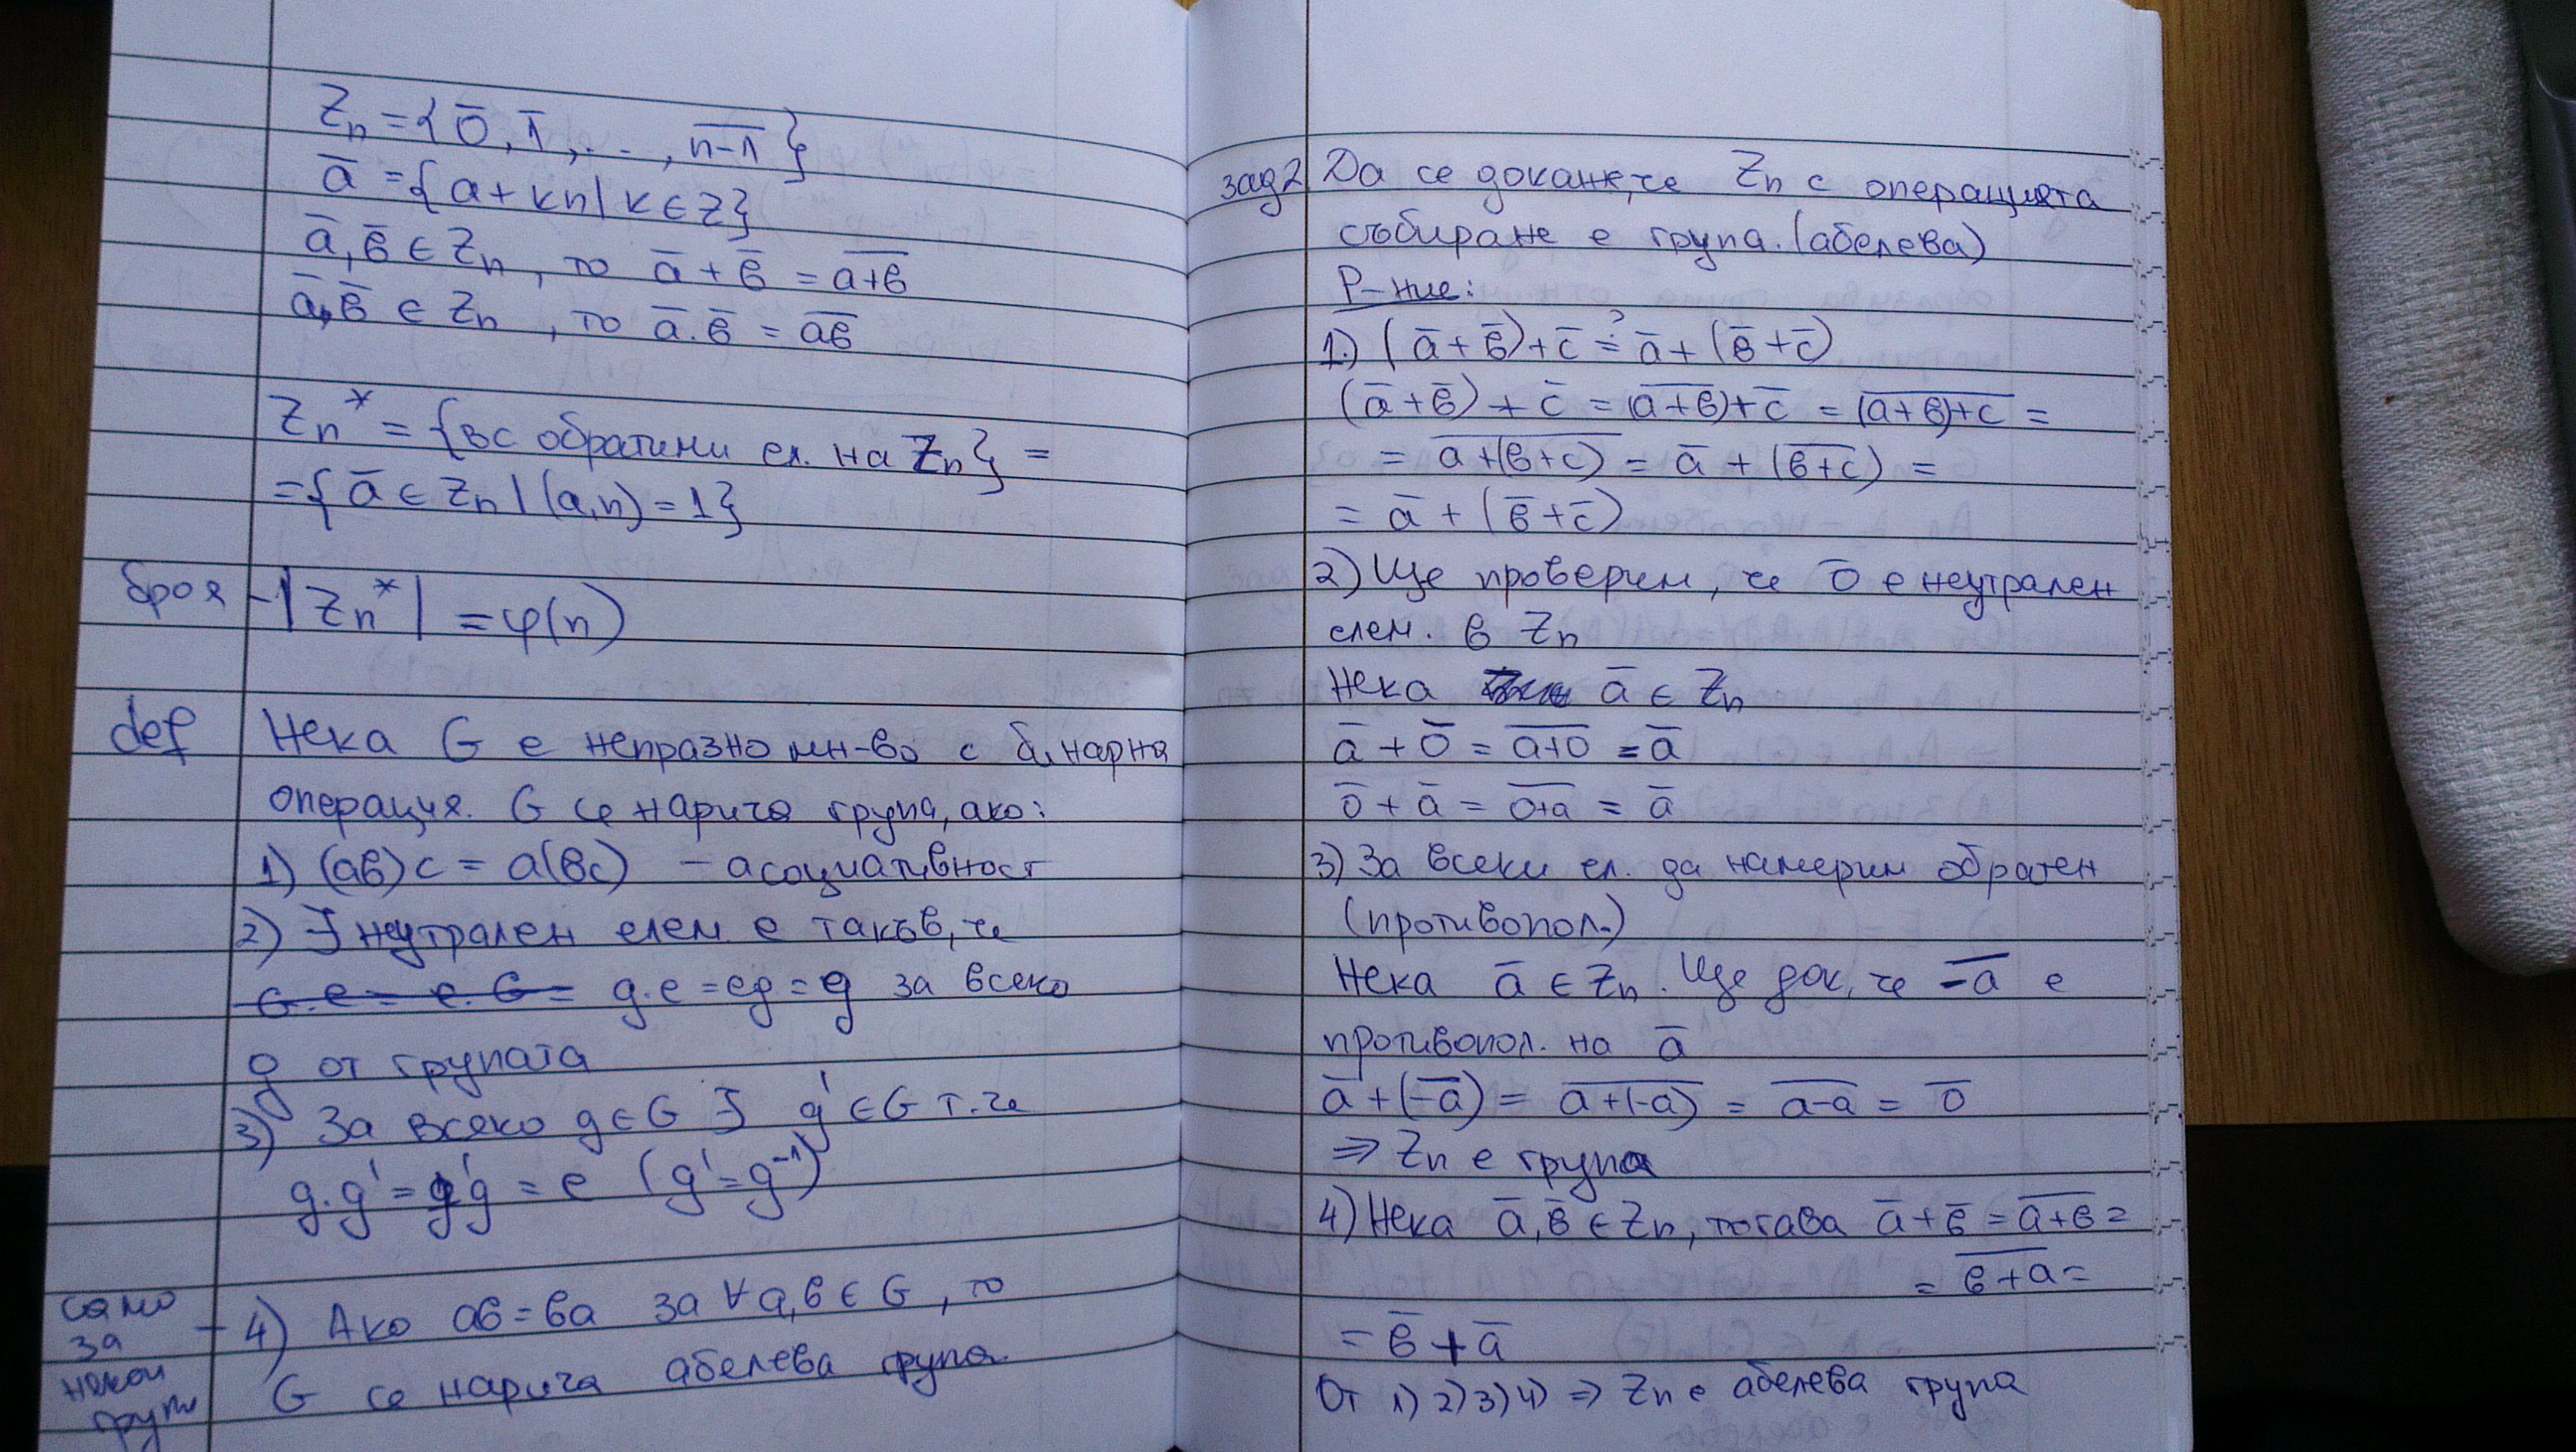 Zn = {0̅, 1̅, . . , n-1̅}
a̅ = {a + kn | k ∈ Z}
a̅, в̅ ∈ Zn, то a̅ + в̅ = a̅+̅в̅
a̅, в̅ ∈ Zn, то a̅ . в̅ = a̅в̅
Zn* = {вс обратими ел. на Zn} =
= {a̅ ∈ Zn | (a, n) = 1}
броя - |Zn*| = φ(n)
def Нека G е непразно мн-во с бинарна
операция. G се нарича група, ако:
1) (aв)c = a(вc) - асоциативност
2) ∃ неутрален елем. e такъв, че
g.e = eg = g за всяко
g от групата
3) За всяко g ∈ G ∃ g' ∈ G т.че
g.g' = g'g = e (g' = g⁻¹)
само
за
някои
групи
- 4) Ако aв = вa за ∀ a, в ∈ G, то
G се нарича абелева група.
зад2 Да се докаже, че Zn с операцията
събиране е група. (абелева)
Р-ние:
1.) (a̅ + в̅) + c̅ ≟ a̅ + (в̅ + c̅)
(a̅ + в̅) + c̅ = (a̅+̅в̅) + c̅ = (̅a̅+̅в̅)̅+̅c̅ =
= a̅+̅(̅в̅+̅c̅)̅ = a̅ + (в̅+̅c̅) =
= a̅ + (в̅ + c̅)
2) Ще проверим, че 0̅ е неутрален
елем. в Zn
Нека a̅ ∈ Zn
a̅ + 0̅ = a̅+̅0̅ = a̅
0̅ + a̅ = 0̅+̅a̅ = a̅
3) За всеки ел. да намерим обратен
(противопол.)
Нека a̅ ∈ Zn. Ще док, че -̅a̅ е
противопол. на a̅
a̅ + (-̅a̅) = a̅+̅(̅-̅a̅)̅ = a̅-̅a̅ = 0̅
⇒ Zn е група
4) Нека a̅, в̅ ∈ Zn, тогава a̅ + в̅ = a̅+̅в̅ =
= в̅+̅a̅ =
= в̅ + a̅
От 1) 2) 3) 4) ⇒ Zn е абелева група